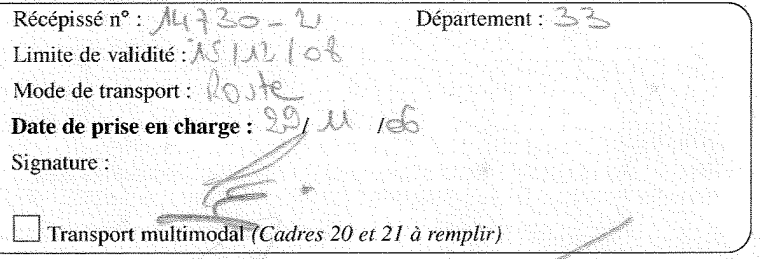 Récépissé n° : 14730-2 Département : 33
Limite de validité : 15/12/08
Mode de transport : Route
Date de prise en charge : 29/ 11 /06
Signature :
Transport multimodal (Cadres 20 et 21 à remplir)